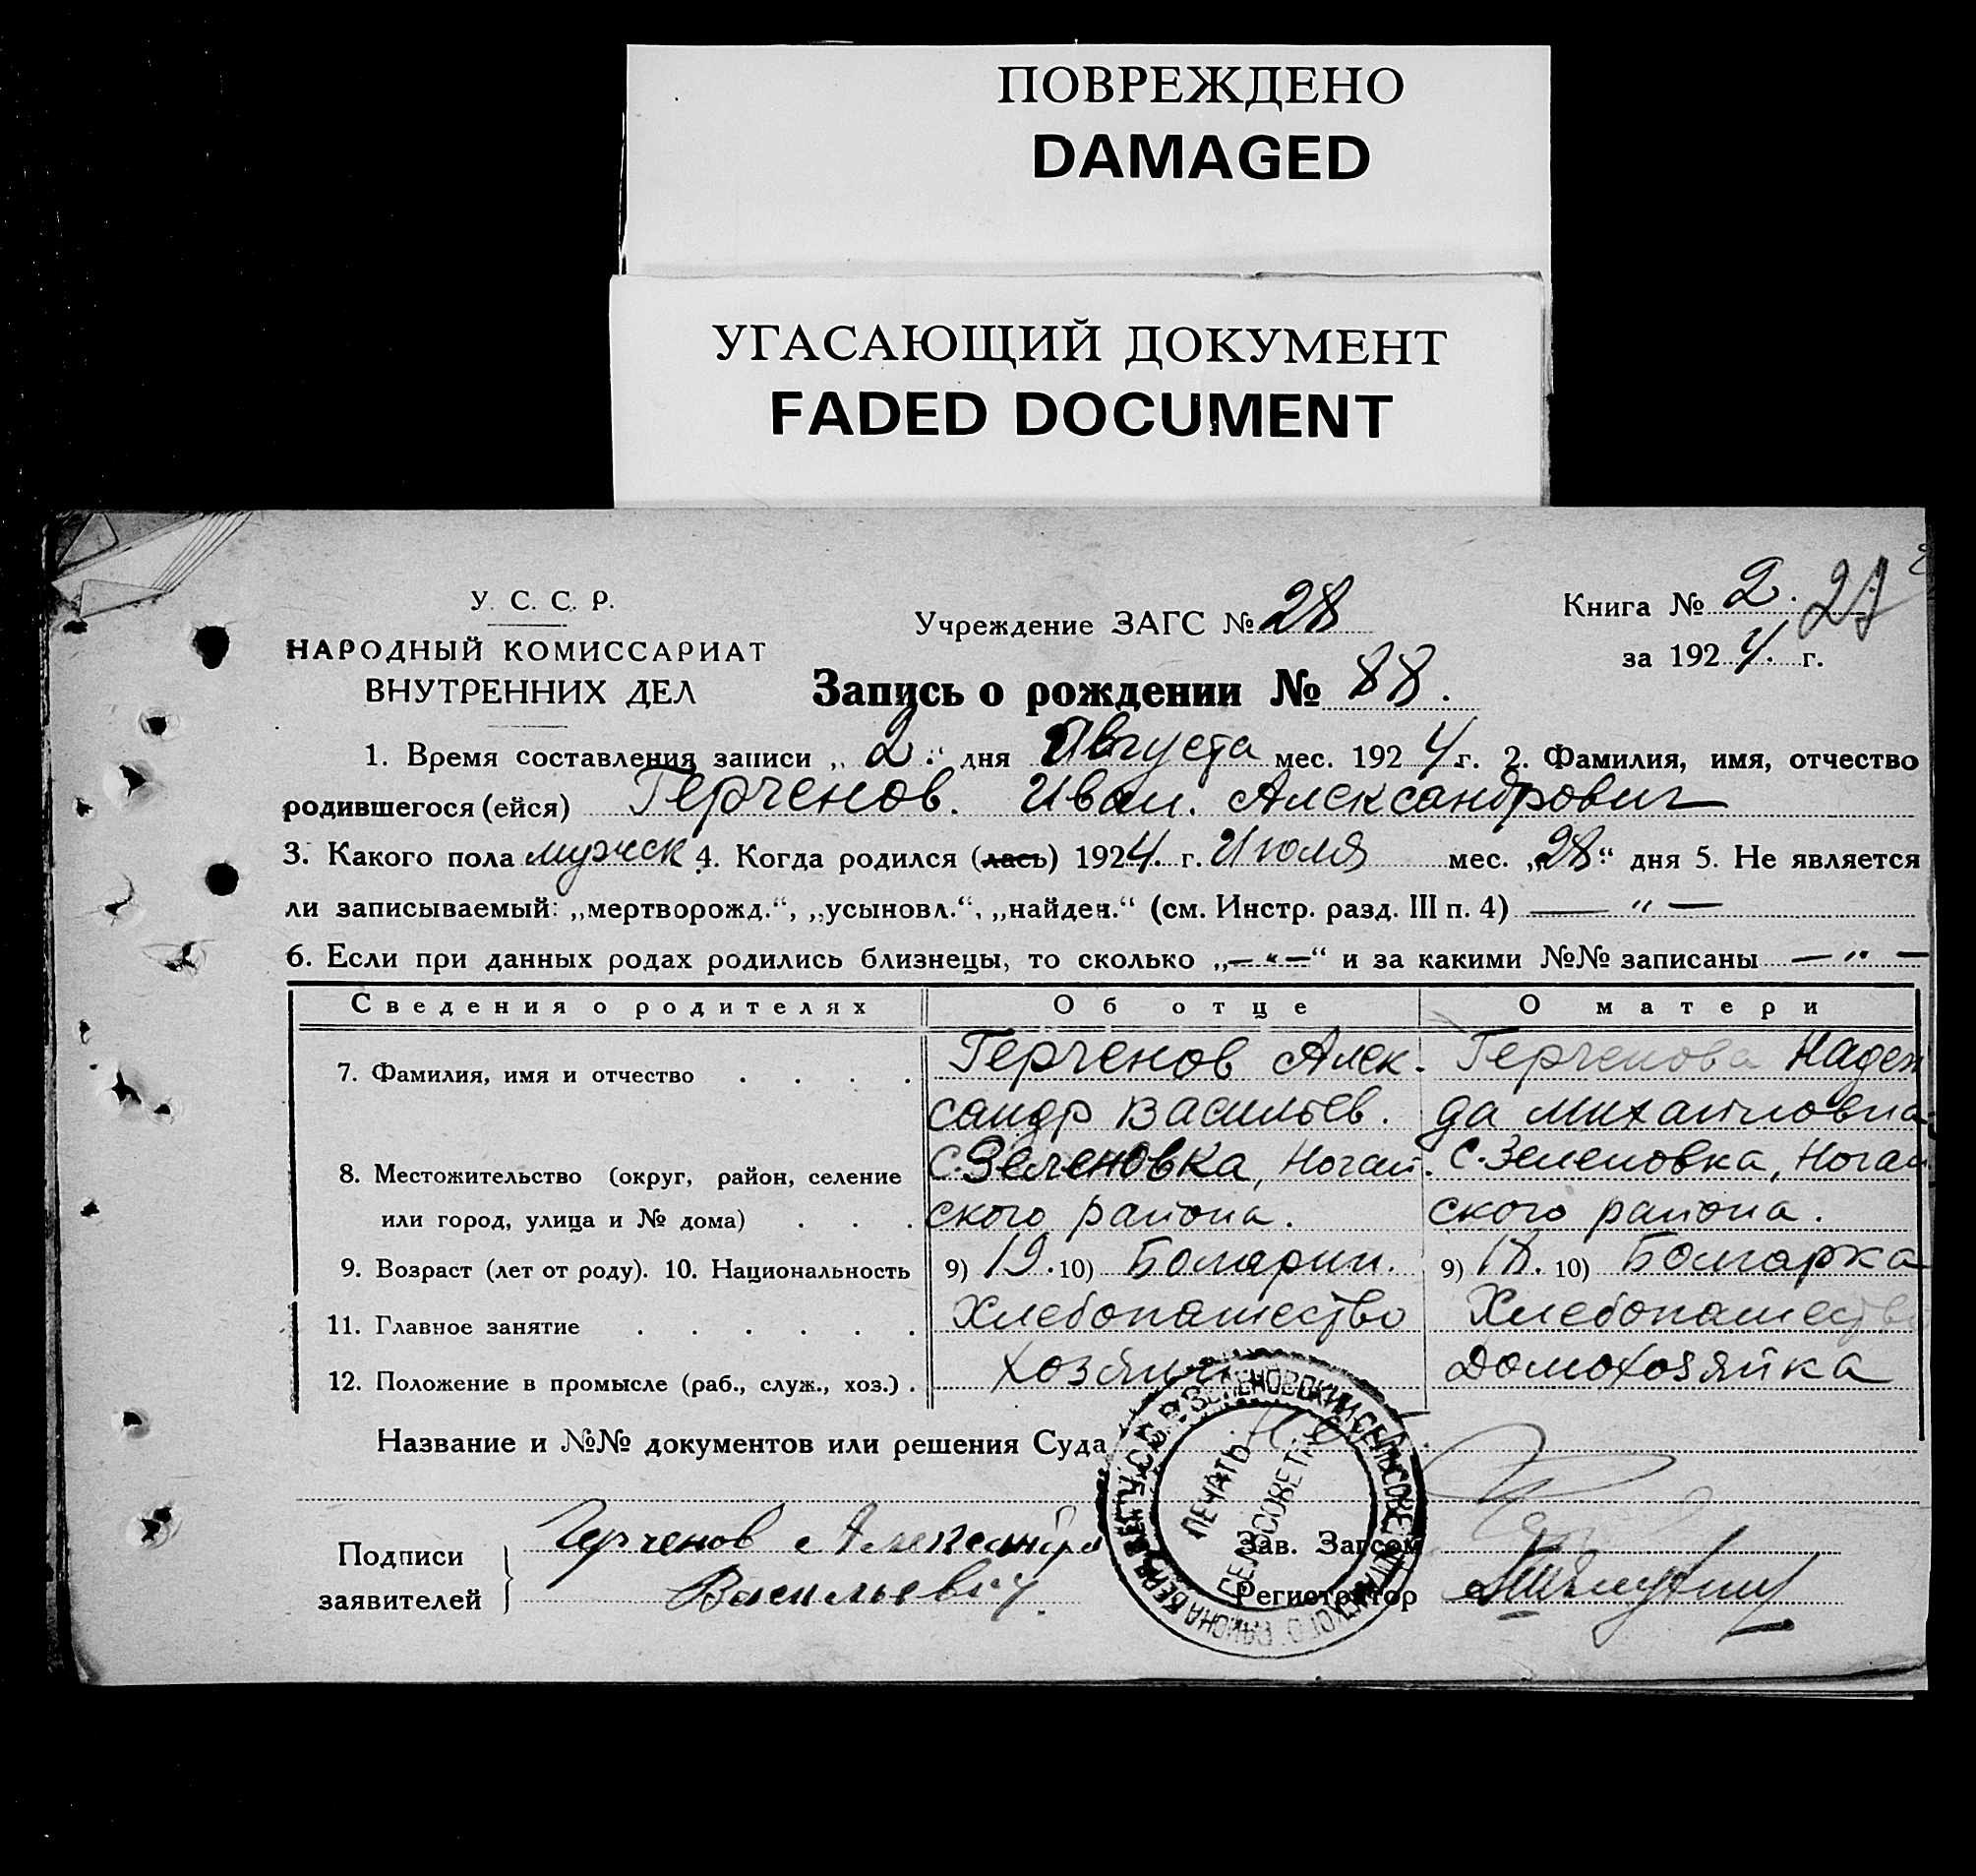 ПОВРЕЖДЕНО
DAMAGED
УГАСАЮЩИЙ ДОКУМЕНТ
FADED DOCUMENT
У. С. С. Р.
НАРОДНЫЙ КОМИССАРИАТ
ВНУТРЕННИХ ДЕЛ
Учреждение ЗАГС № 28
Книга № 2.
за 1924. г.
Запись о рождении № 88.
1. Время составления записи „2.“ дня Августа мес. 1924 г. 2. Фамилия, имя, отчество
родившегося (ейся) Герченов. Иван. Александрович
3. Какого пола мужск 4. Когда родился (лась) 1924. г. Июля мес. „28.“ дня 5. Не является
ли записываемый: „мертворожд.“, „усыновл.“, „найден.“ (см. Инстр. разд. III п. 4) — „ —
6. Если при данных родах родились близнецы, то сколько „— “ —“ и за какими №№ записаны — “ —
Сведения о родителях Об отце О матери
7. Фамилия, имя и отчество . . . . Герченов Алек- Герченова Надеж
сандр Васильев. да Михайловна
8. Местожительство (округ, район, селение С. Зеленовка, Ногай- С. Зеленовка, Ногай
или город, улица и № дома) . . . ского района. ского района.
9. Возраст (лет от роду). 10. Национальность 9) 19. 10) Болгарин. 9) 18. 10) Болгарка
11. Главное занятие . . . . . . Хлебопашество Хлебопашество
12. Положение в промысле (раб., служ., хоз.) . Хозяин Домохозяйка
Название и №№ документов или решения Суда
ПЕЧАТЬ
СЕЛЬСОВЕТА
Подписи заявителей Герченов Александр
Васильевич.
Зав. Загсом
Регистратор